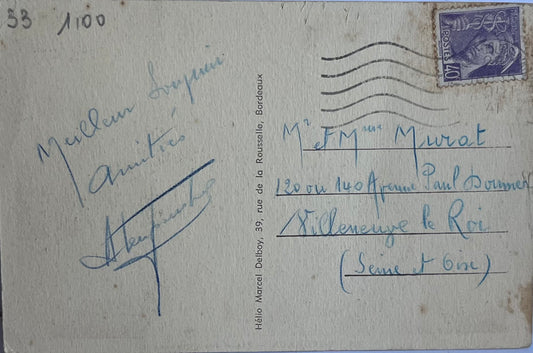 33 1,00
Meilleur Souvenir
Amitiés
Hélio Marcel Delboy, 39, rue de la Rousselle, Bordeaux
POSTES 40
Mr et Mme Murat
120 ou 140 Avenue Paul Doumer
Villeneuve le Roi
(Seine et Oise)